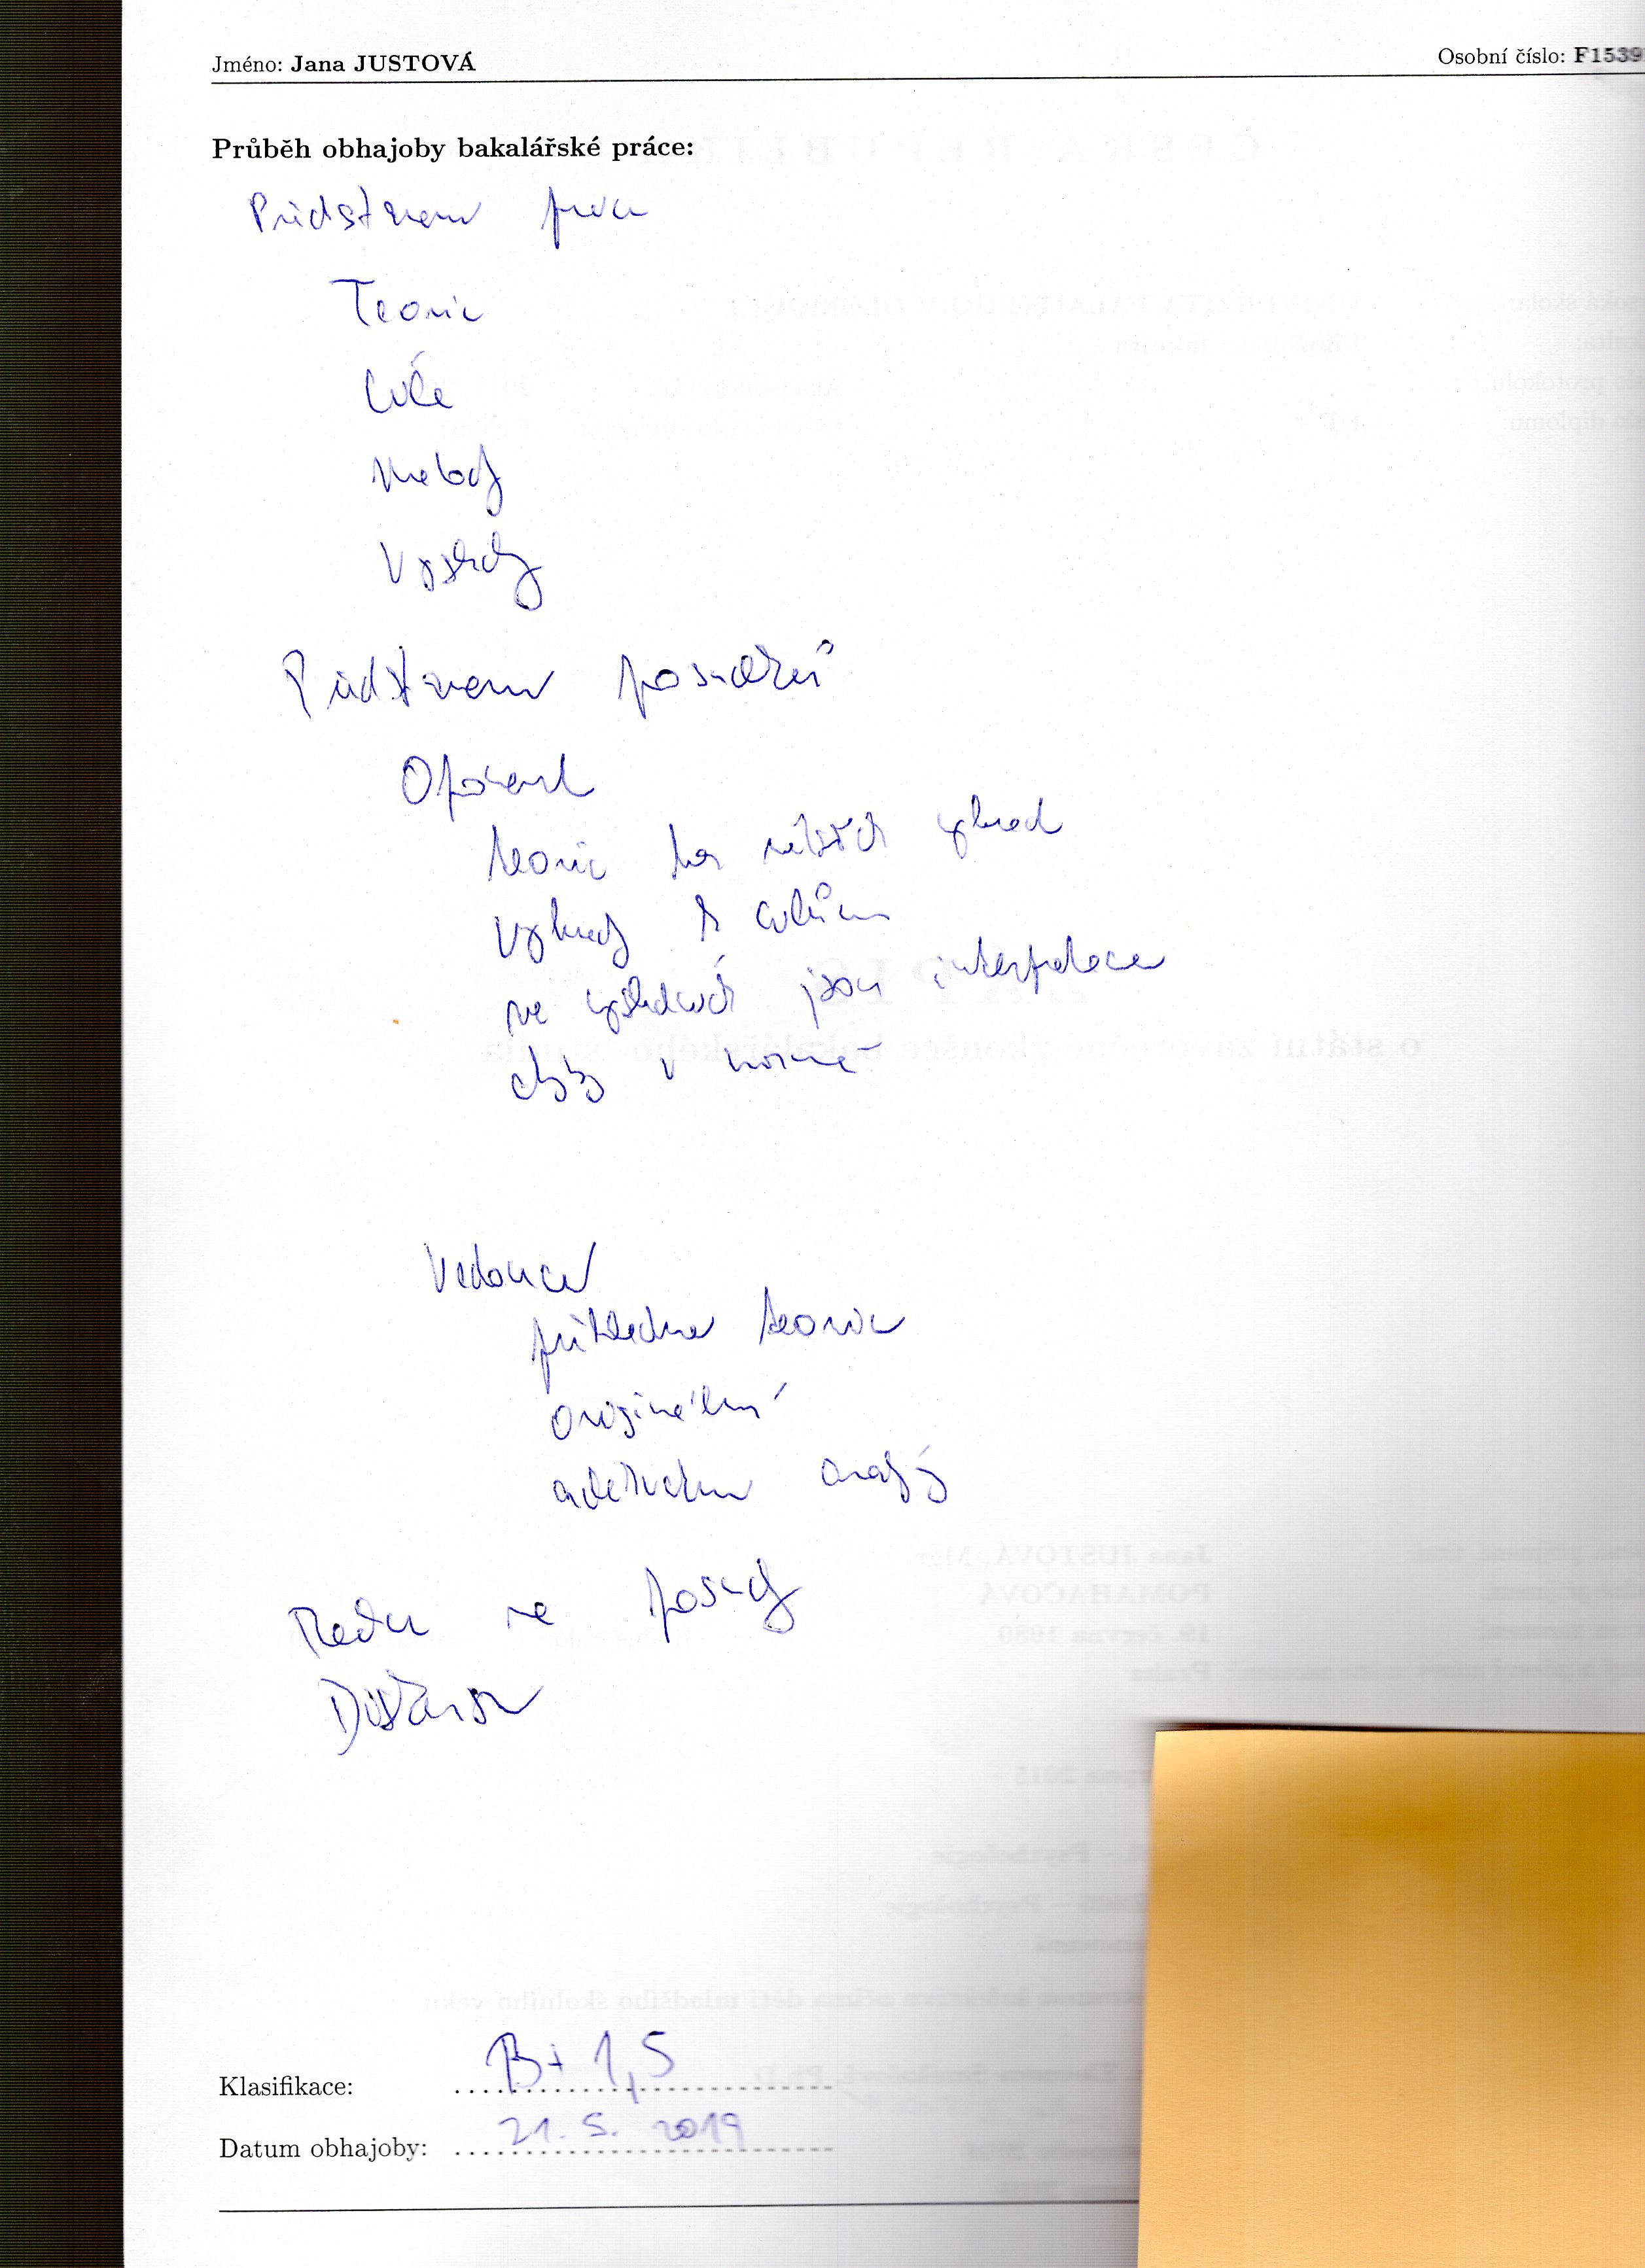 Jméno: Jana JUSTOVÁ Osobní číslo: F1539
Průběh obhajoby bakalářské práce:
Představení práce
Teorie
Cíle
Metody
Výsledky
Představení posudků
Oponent
teorie bez větších výhrad
výhrady k cílům
ve výsledcích jsou interpretace
chyby v normě
Vedoucí
přehledná teorie
originální
adekvátní analýzy
Reakce na posudky
Diskuse
Klasifikace: B+ 1,5
Datum obhajoby: 21. 5. 2019